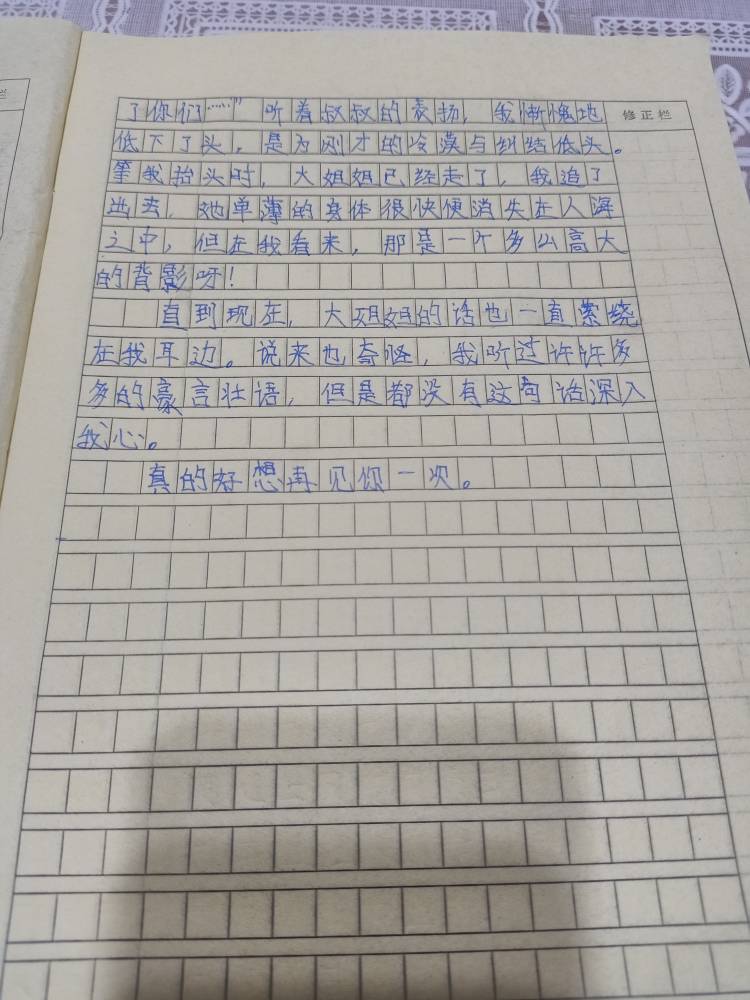 了你们……”听着叔叔的表扬，我惭愧地
修正栏
低下了头，是为刚才的冷漠与纠结低头。
等我抬头时，大姐姐已经走了，我追了
出去，她单薄的身体很快便消失在人海
之中，但在我看来，那是一个多么高大
的背影呀！
直到现在，大姐姐的话也一直萦绕
在我耳边。说来也奇怪，我听过许许多
多的豪言壮语，但是都没有这句话深入
我心。
真的好想再见你一次。
栏